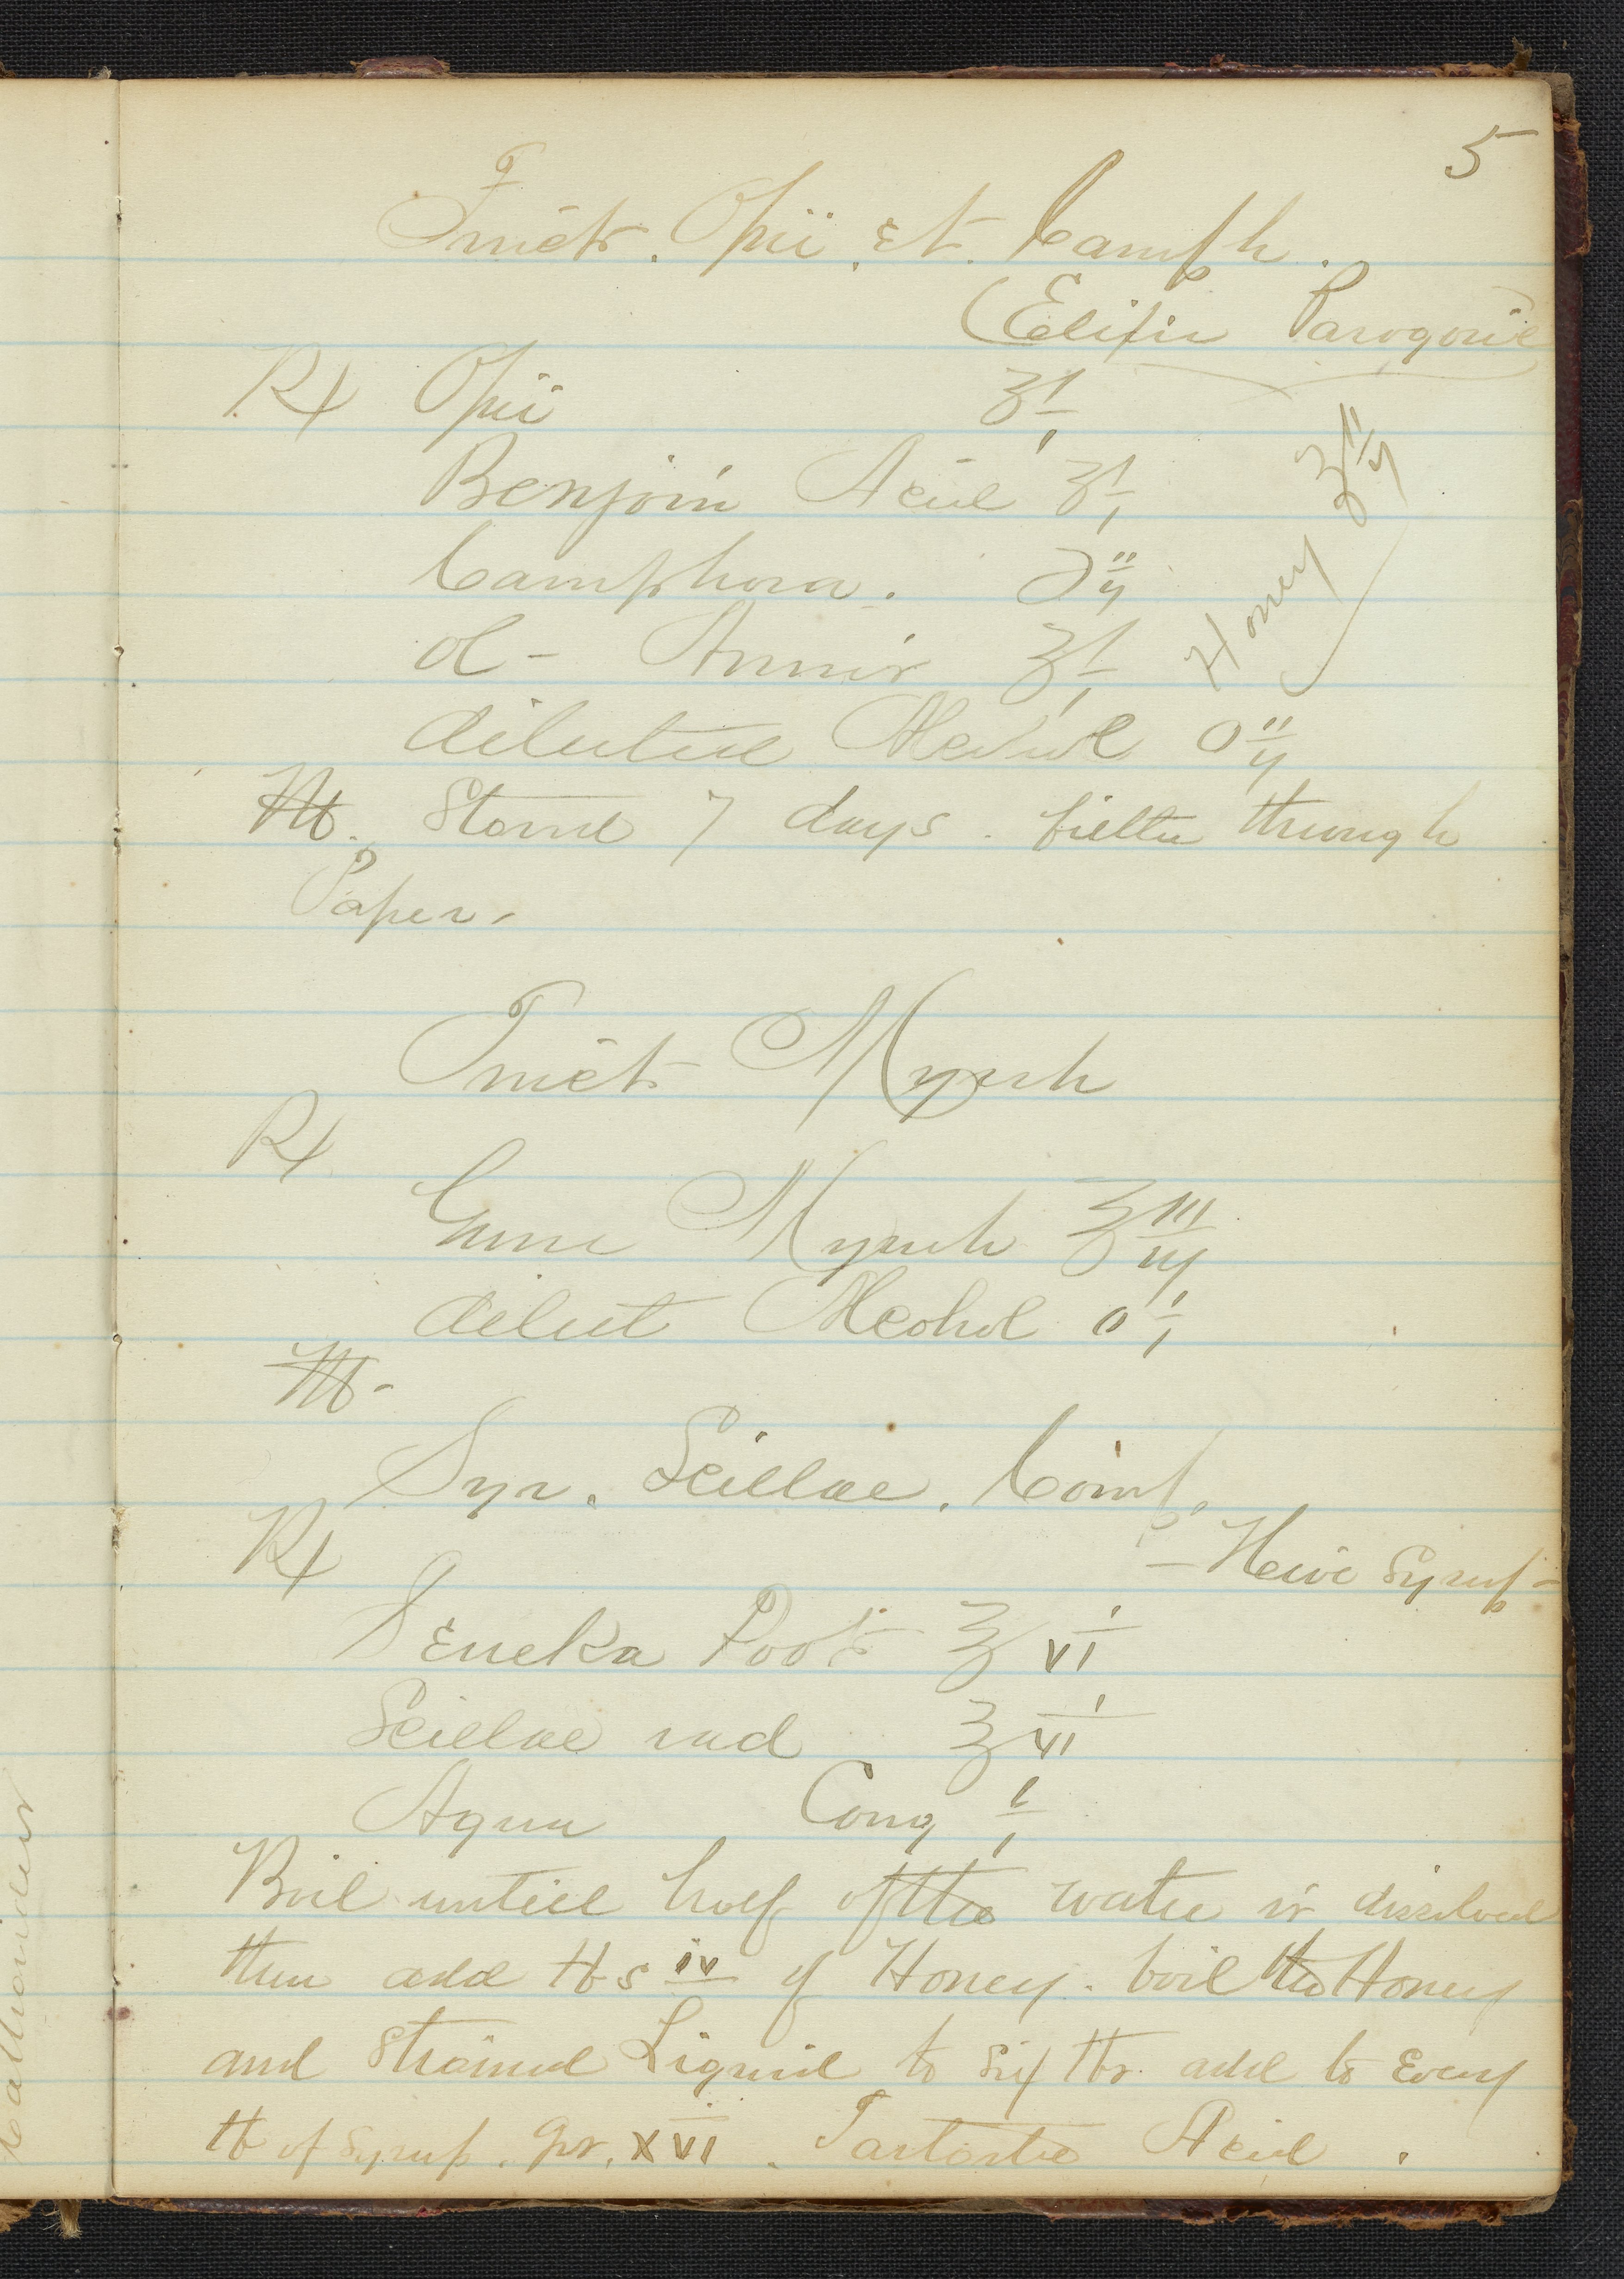 5
Tinct. Opii. et. Camph.
(Elixir Paregoric
Rx Opii ʒi
Benzoin Acid ʒi
Camphora. ℈ij
Ol - Annis ʒi
Honey ℥ij
diluted Alcohol Oij
M. Stand 7 days. fillter through
Paper.
Tinct Myrrh
Rx
Gum Myrrh ℥iij
dilut Alcohol Oi
M-
Syr. Scillae. Comp.
- Hive Syrup -
Rx
Seneka Root ℥vi
Scillae rad ℥vi
Aqua Cong i
Boil untill half of the water is dissolved
then add ℔s iv of Honey. boil the Honey
and strained Liquid to six ℔s. add to Every
℔ of Syrup. Grs. xvi. Tartartic Acid.